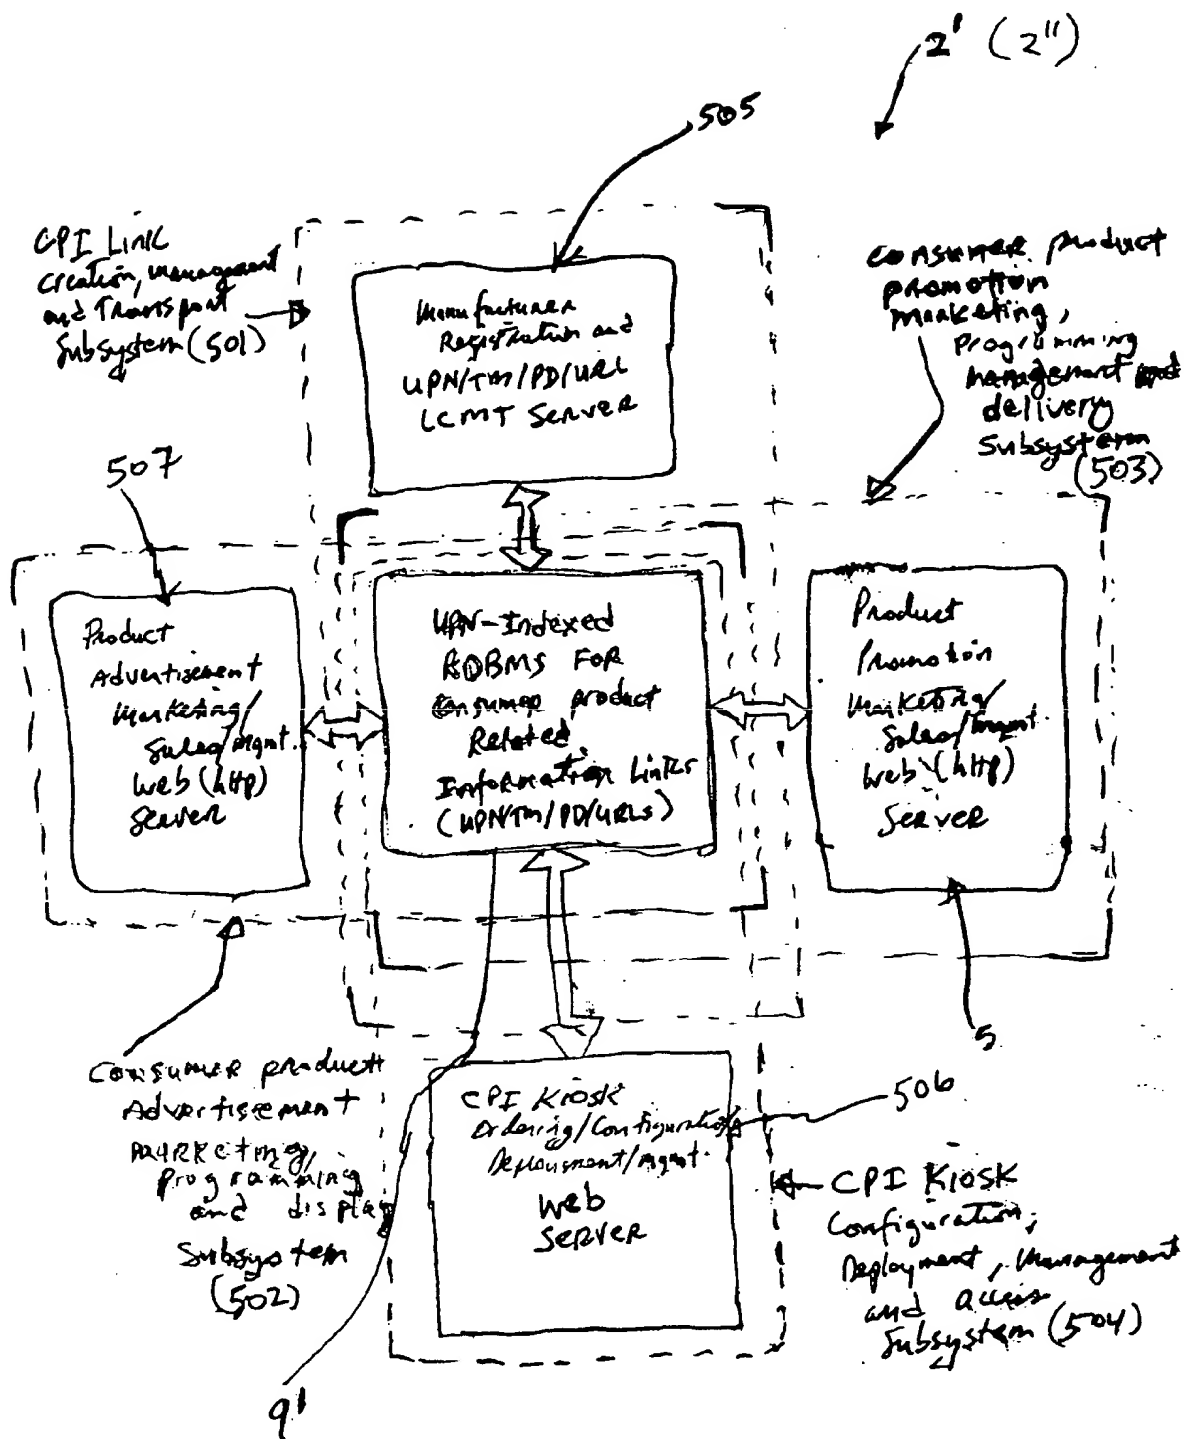 2' (2")
505
CPI Link
Creation, Management
and Transport
Subsystem (501)
Manufacturer
Registration and
UPN/TM/PD/URL
LCMT Server
Consumer product
promotion
marketing,
Programming
management and
delivery
Subsystem
(503)
507
Product
Advertisement
Marketing/
Sales/Mgmt.
Web (http)
Server
UPN-Indexed
RDBMS FOR
Consumer product
Related
Information Links
(UPN/TM/PD/URLs)
Product
Promotion
Marketing/
Sales/Mgmt
Web (http)
Server
5
Consumer product
Advertisement
Marketing,
Programming
and display
Subsystem
(502)
CPI Kiosk
Ordering/Configuration/
Deployment/Mgmt.
Web
Server
506
CPI Kiosk
Configuration,
Deployment, Management
and Access
Subsystem (504)
9'